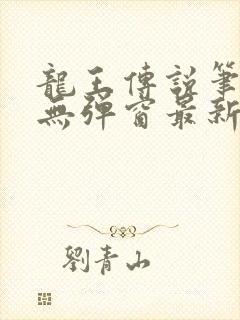 龍王傳說筆
無彈窗最新
劉青山